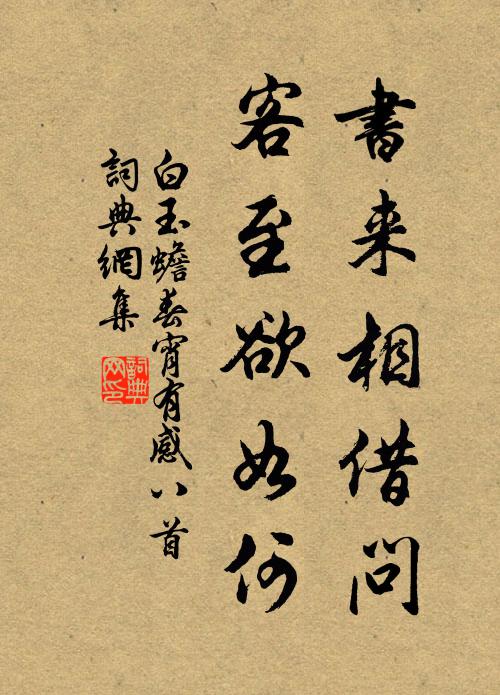 書来相借問
客至欲如何
白玉蟾春宵有感八首
詞典網集
詞典網印